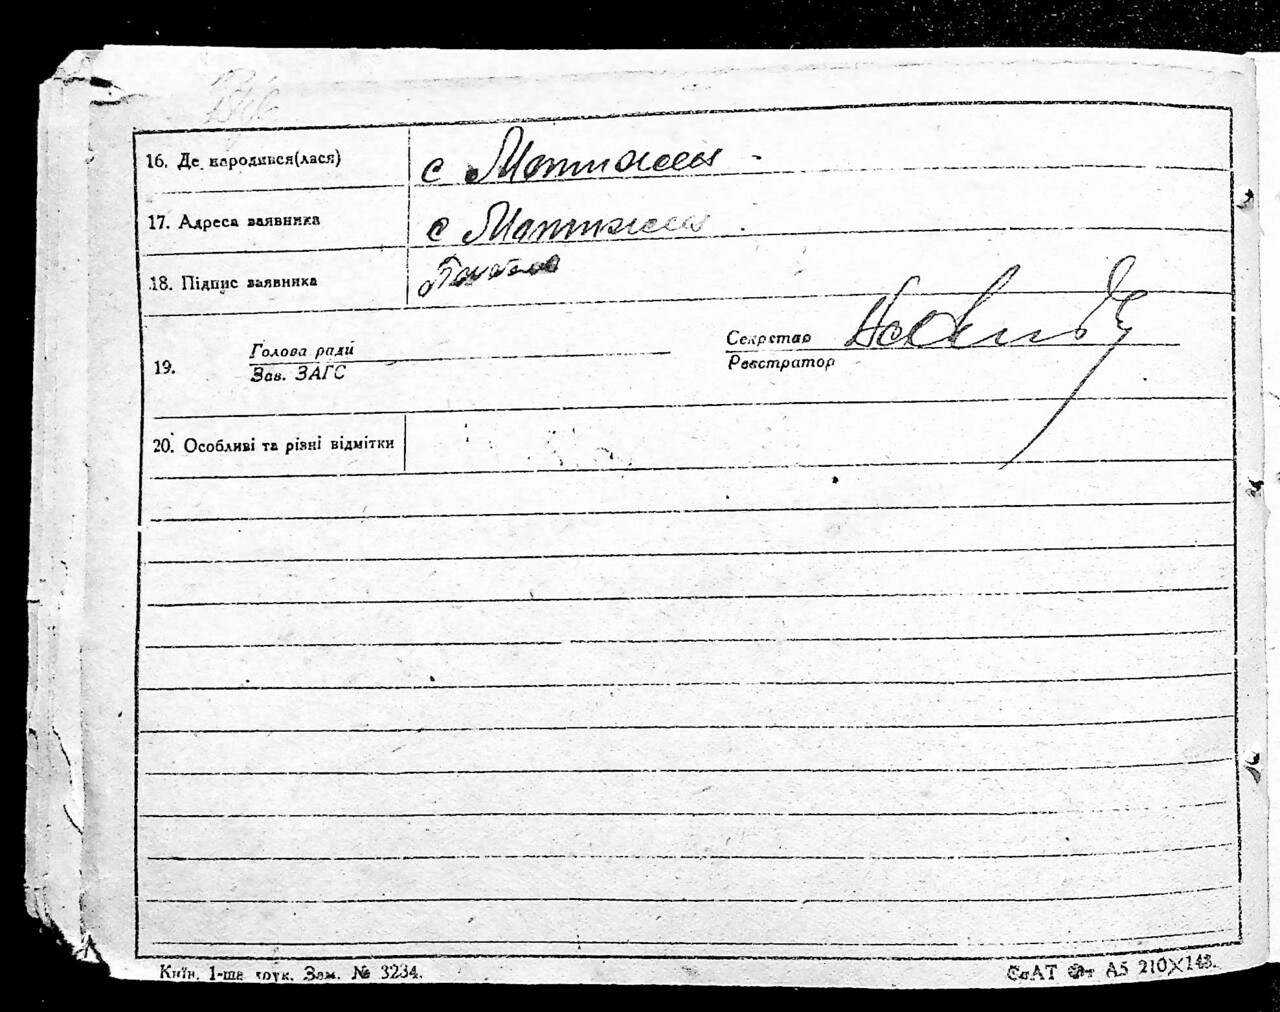 16. Де народився(лася) с Мотижен
17. Адреса заявника с Мотижен
18. Підпис заявника
19. Голова ради
Зав. ЗАГС
Секретар
Реєстратор
20. Особливі та різні відмітки
Київ. 1-ше друк. Зам. № 3234.
А5 210×148.